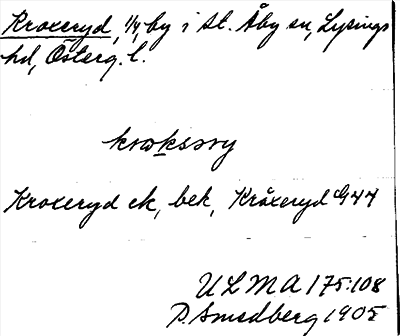 Kroxeryd, 1/4, by i St. Åby sn, Lysings
hd, Österg. l.
kroksory
Kroxeryd ek, bek, Kråxeryd G44
ULMA 175:108
P. Smedberg 1905